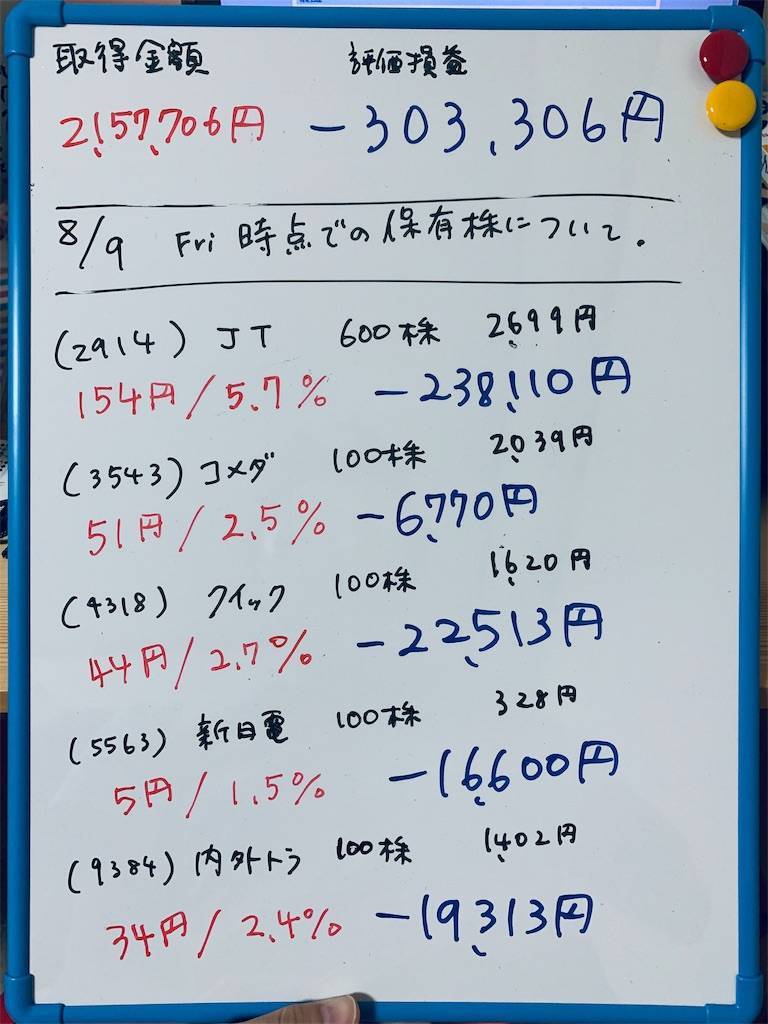 取得金額 評価損益
2,157,706円 -303,306円
8/9 Fri 時点での保有株について.
(2914) JT 600株 2,699円
154円/5.7% -238,110円
(3543) コメダ 100株 2,039円
51円/2.5% -6,770円
(4318) クイック 100株 1,620円
44円/2.7% -22,513円
(5563) 新日電 100株 328円
5円/1.5% -16,600円
(9384) 内外トラ 100株 1,402円
34円/2.4% -19,313円